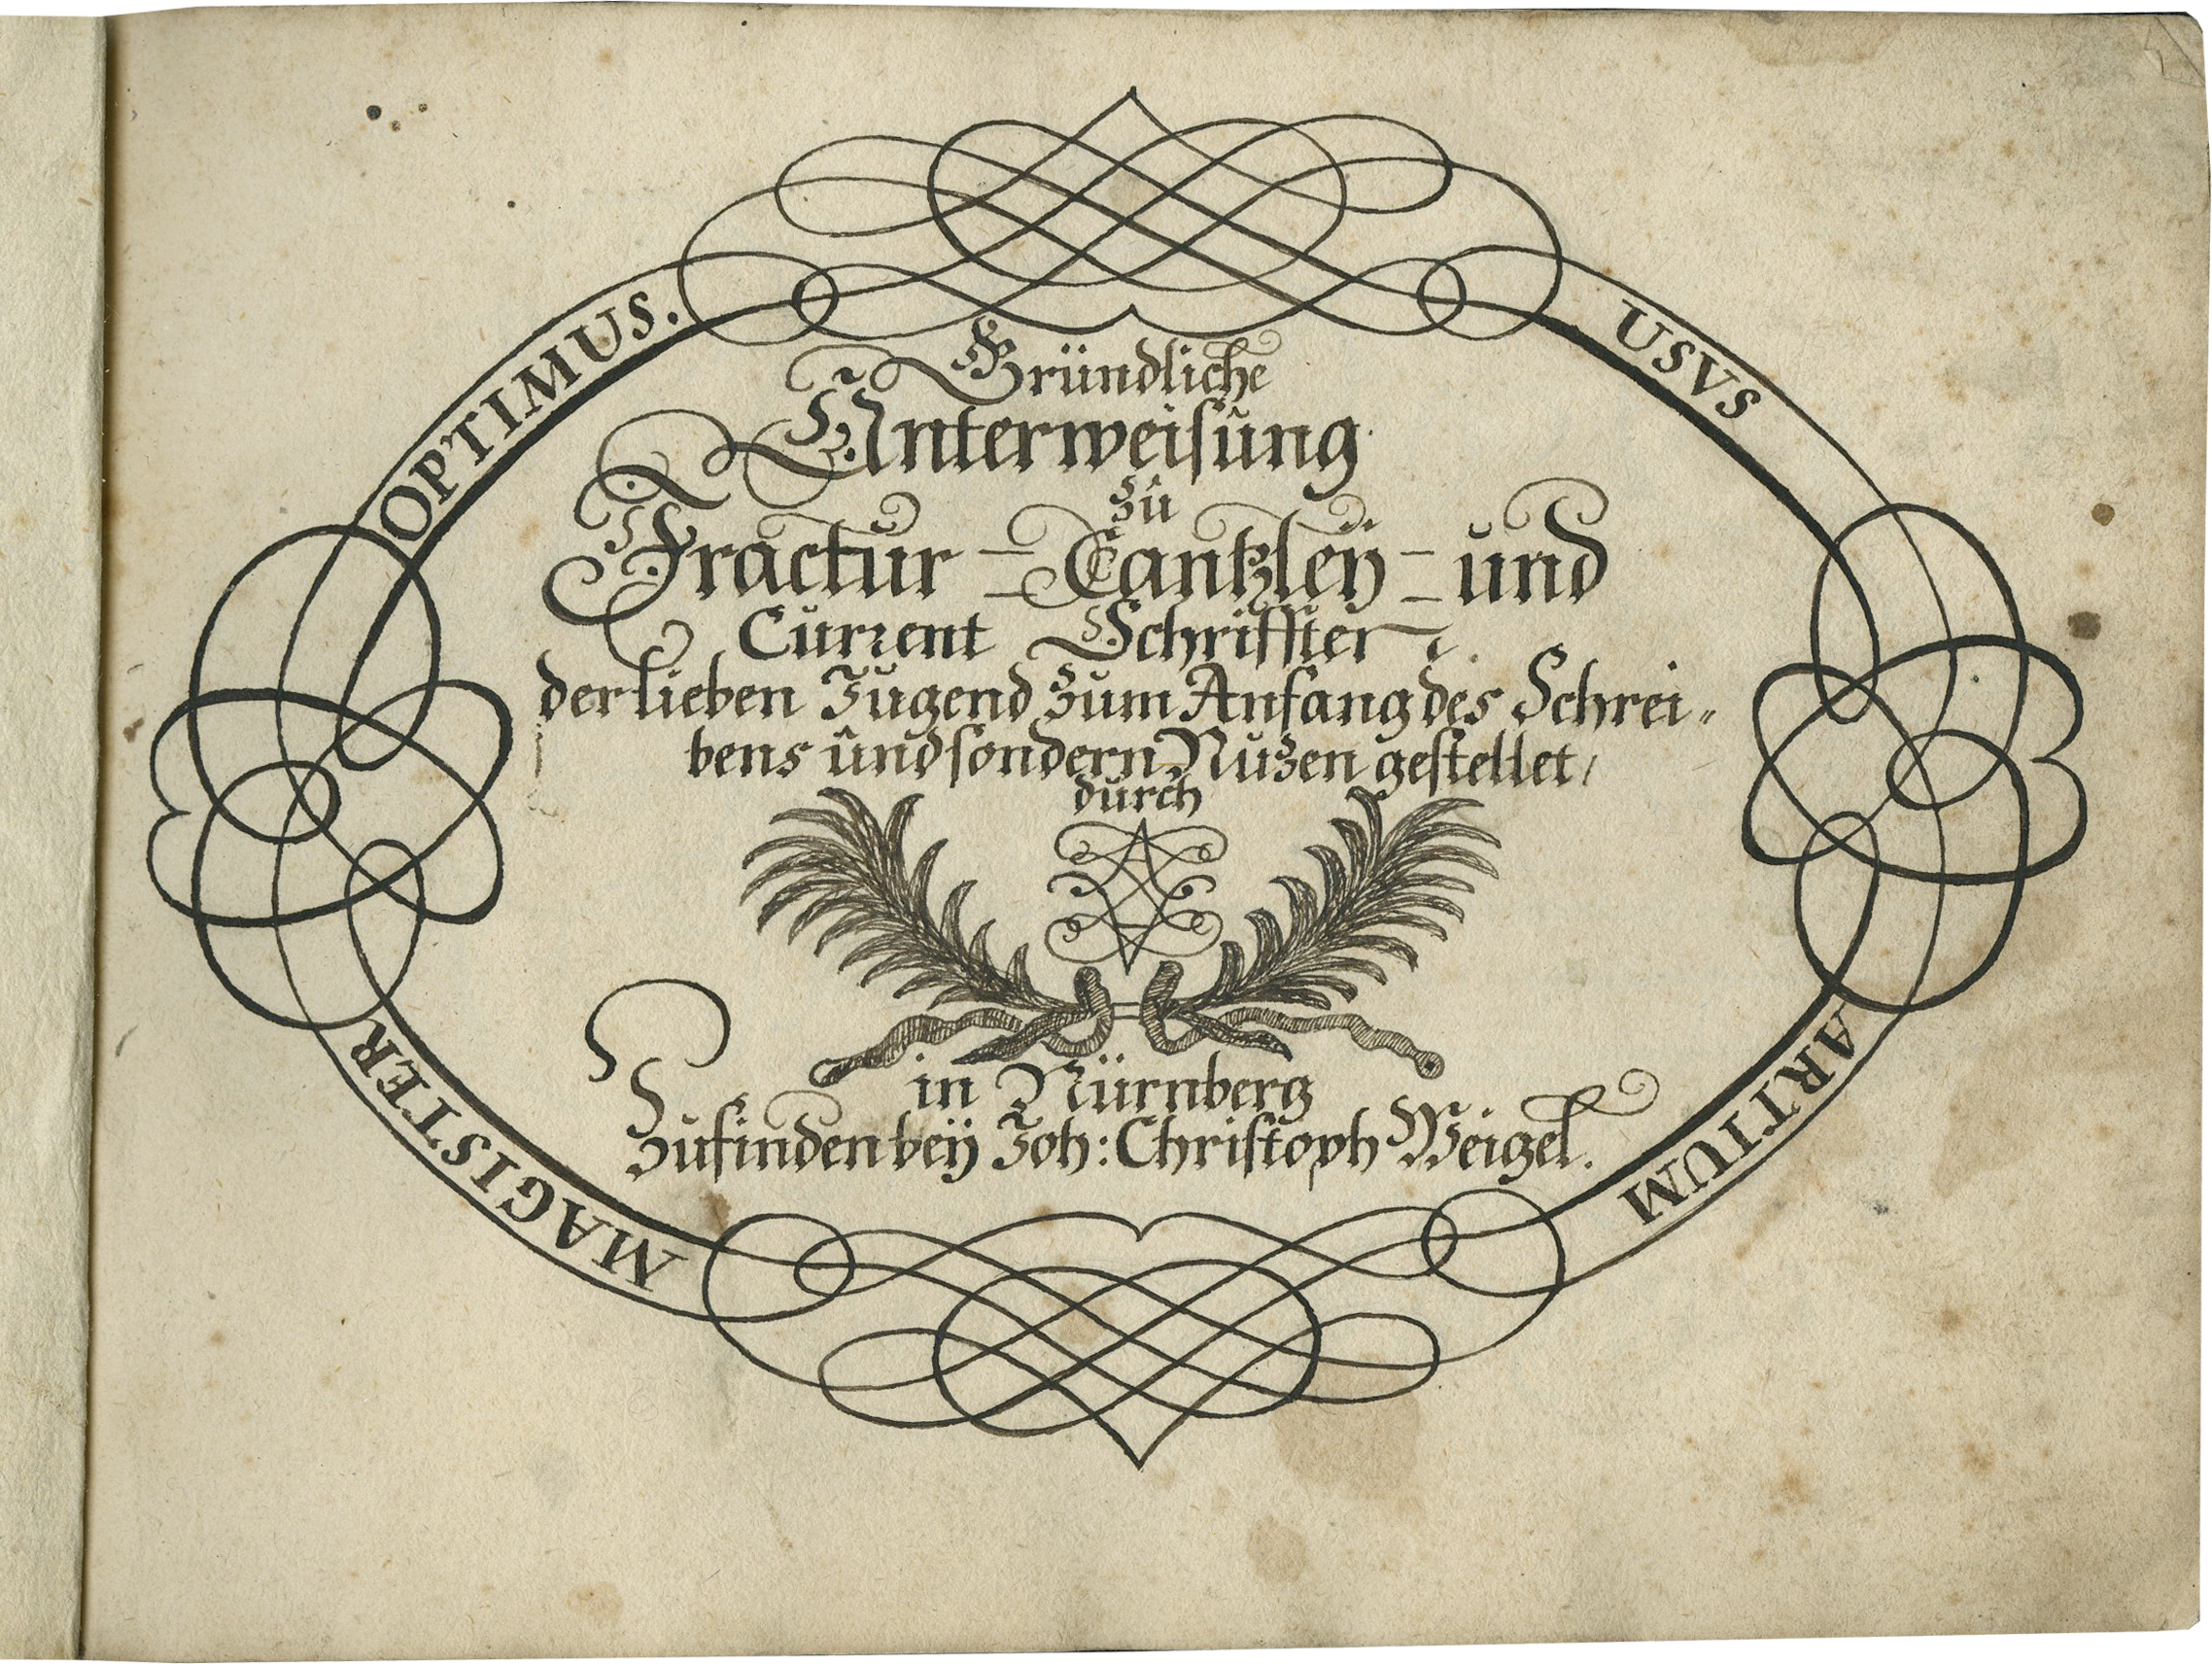 USVS
ARTIUM
MAGISTER
OPTIMUS.
Gründliche
Unterweisung
zu
Fractur - Cantzleÿ - und
Current Schrifften
der lieben Jugend zum Anfang des Schrei„
bens und sondern Nuzen gestellet/
durch
in Nürnberg
Zufinden beÿ Joh: Christoph Weigel.